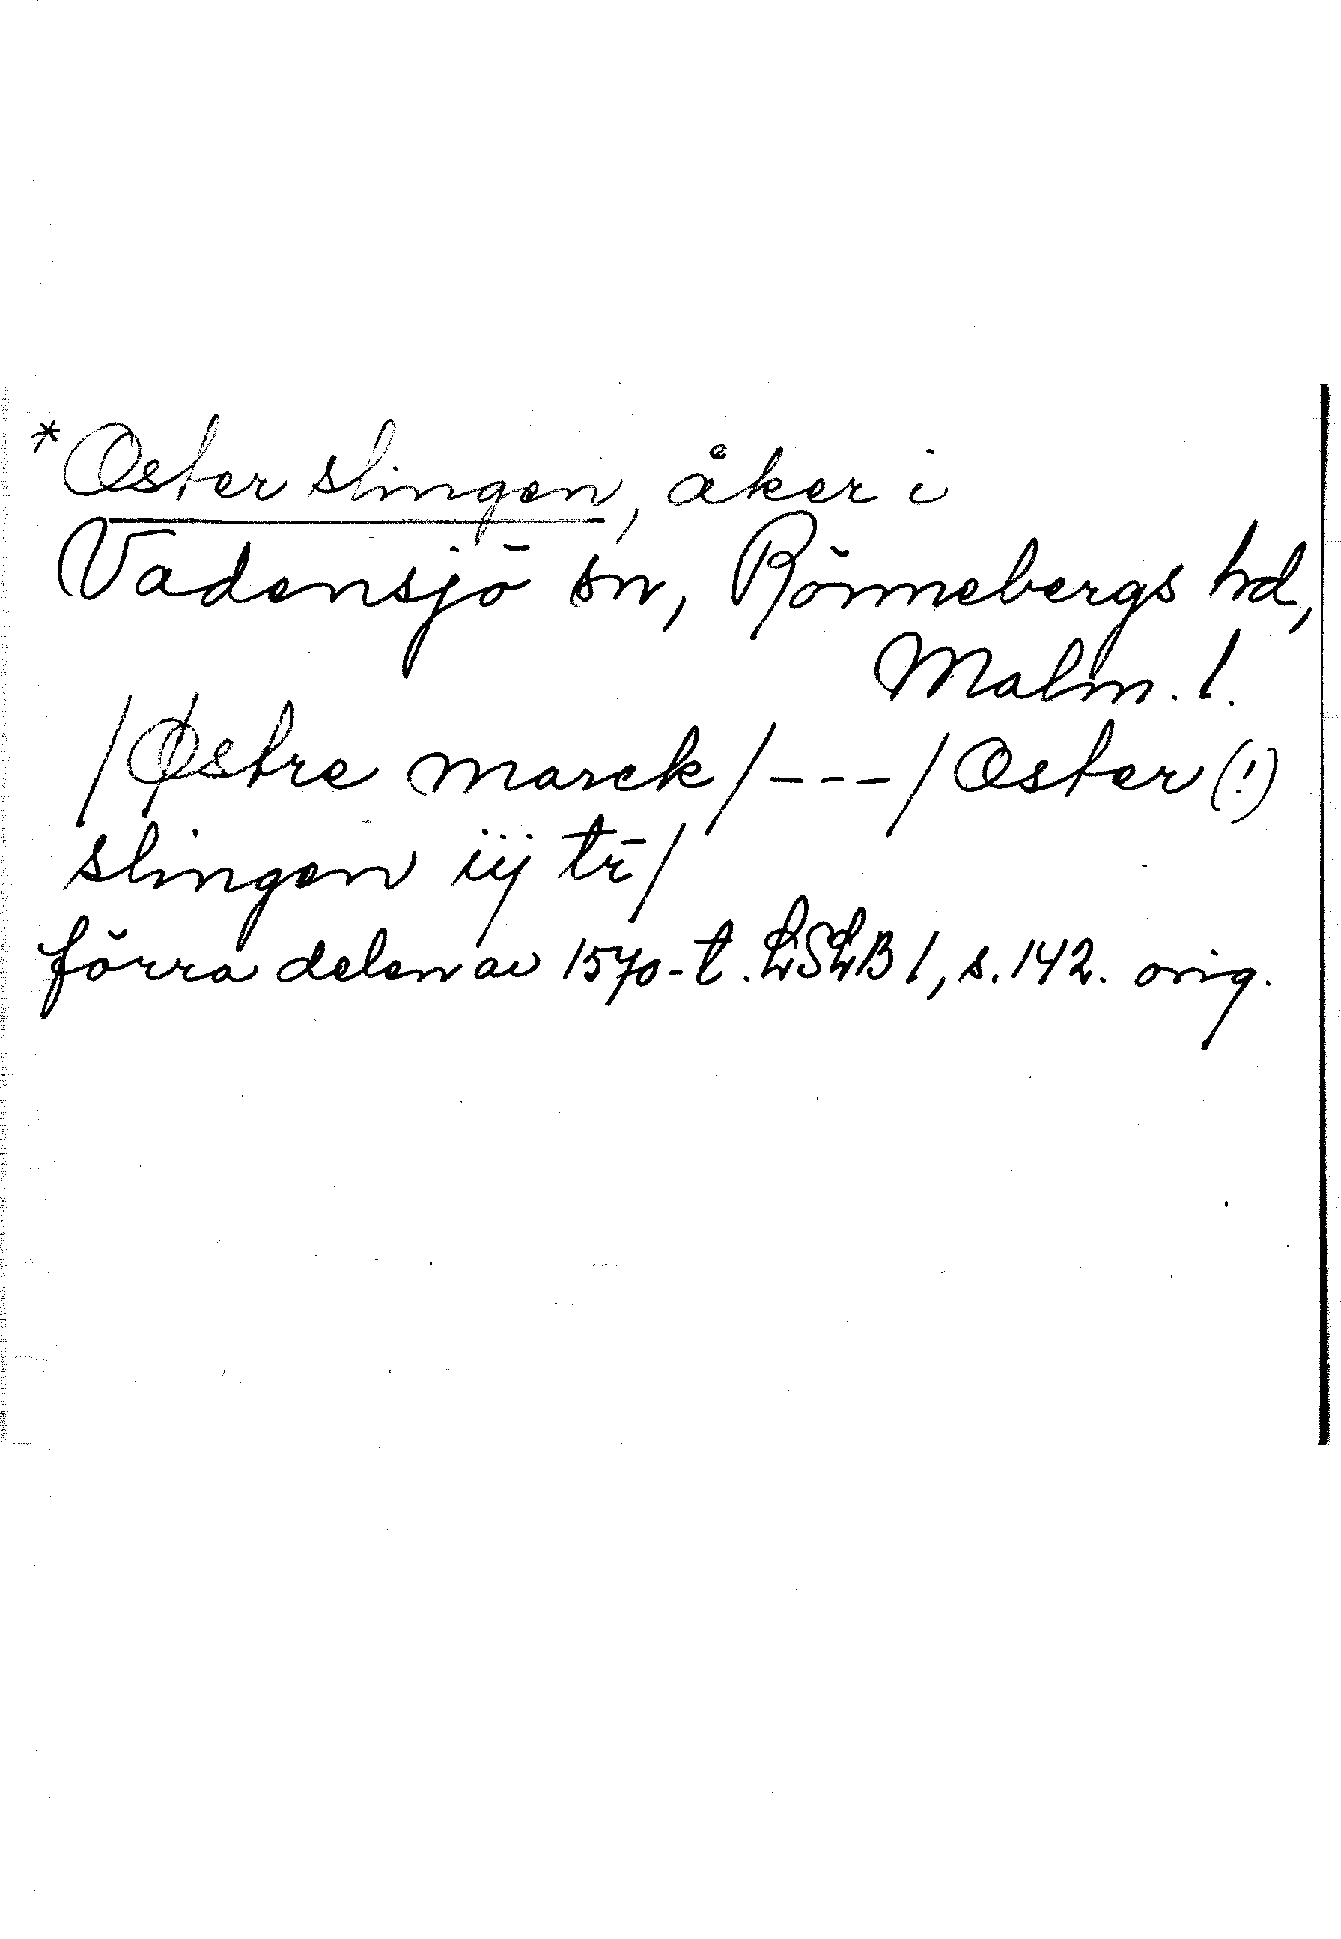 *Oster slingen, åker i
Vadensjö sn, Rönnebergs hd,
Malm. l.
/Østre marck/---/Oster(!)
slingen iij tr̄/
förra delen av 1570-t. LSLB 1, s. 142. orig.